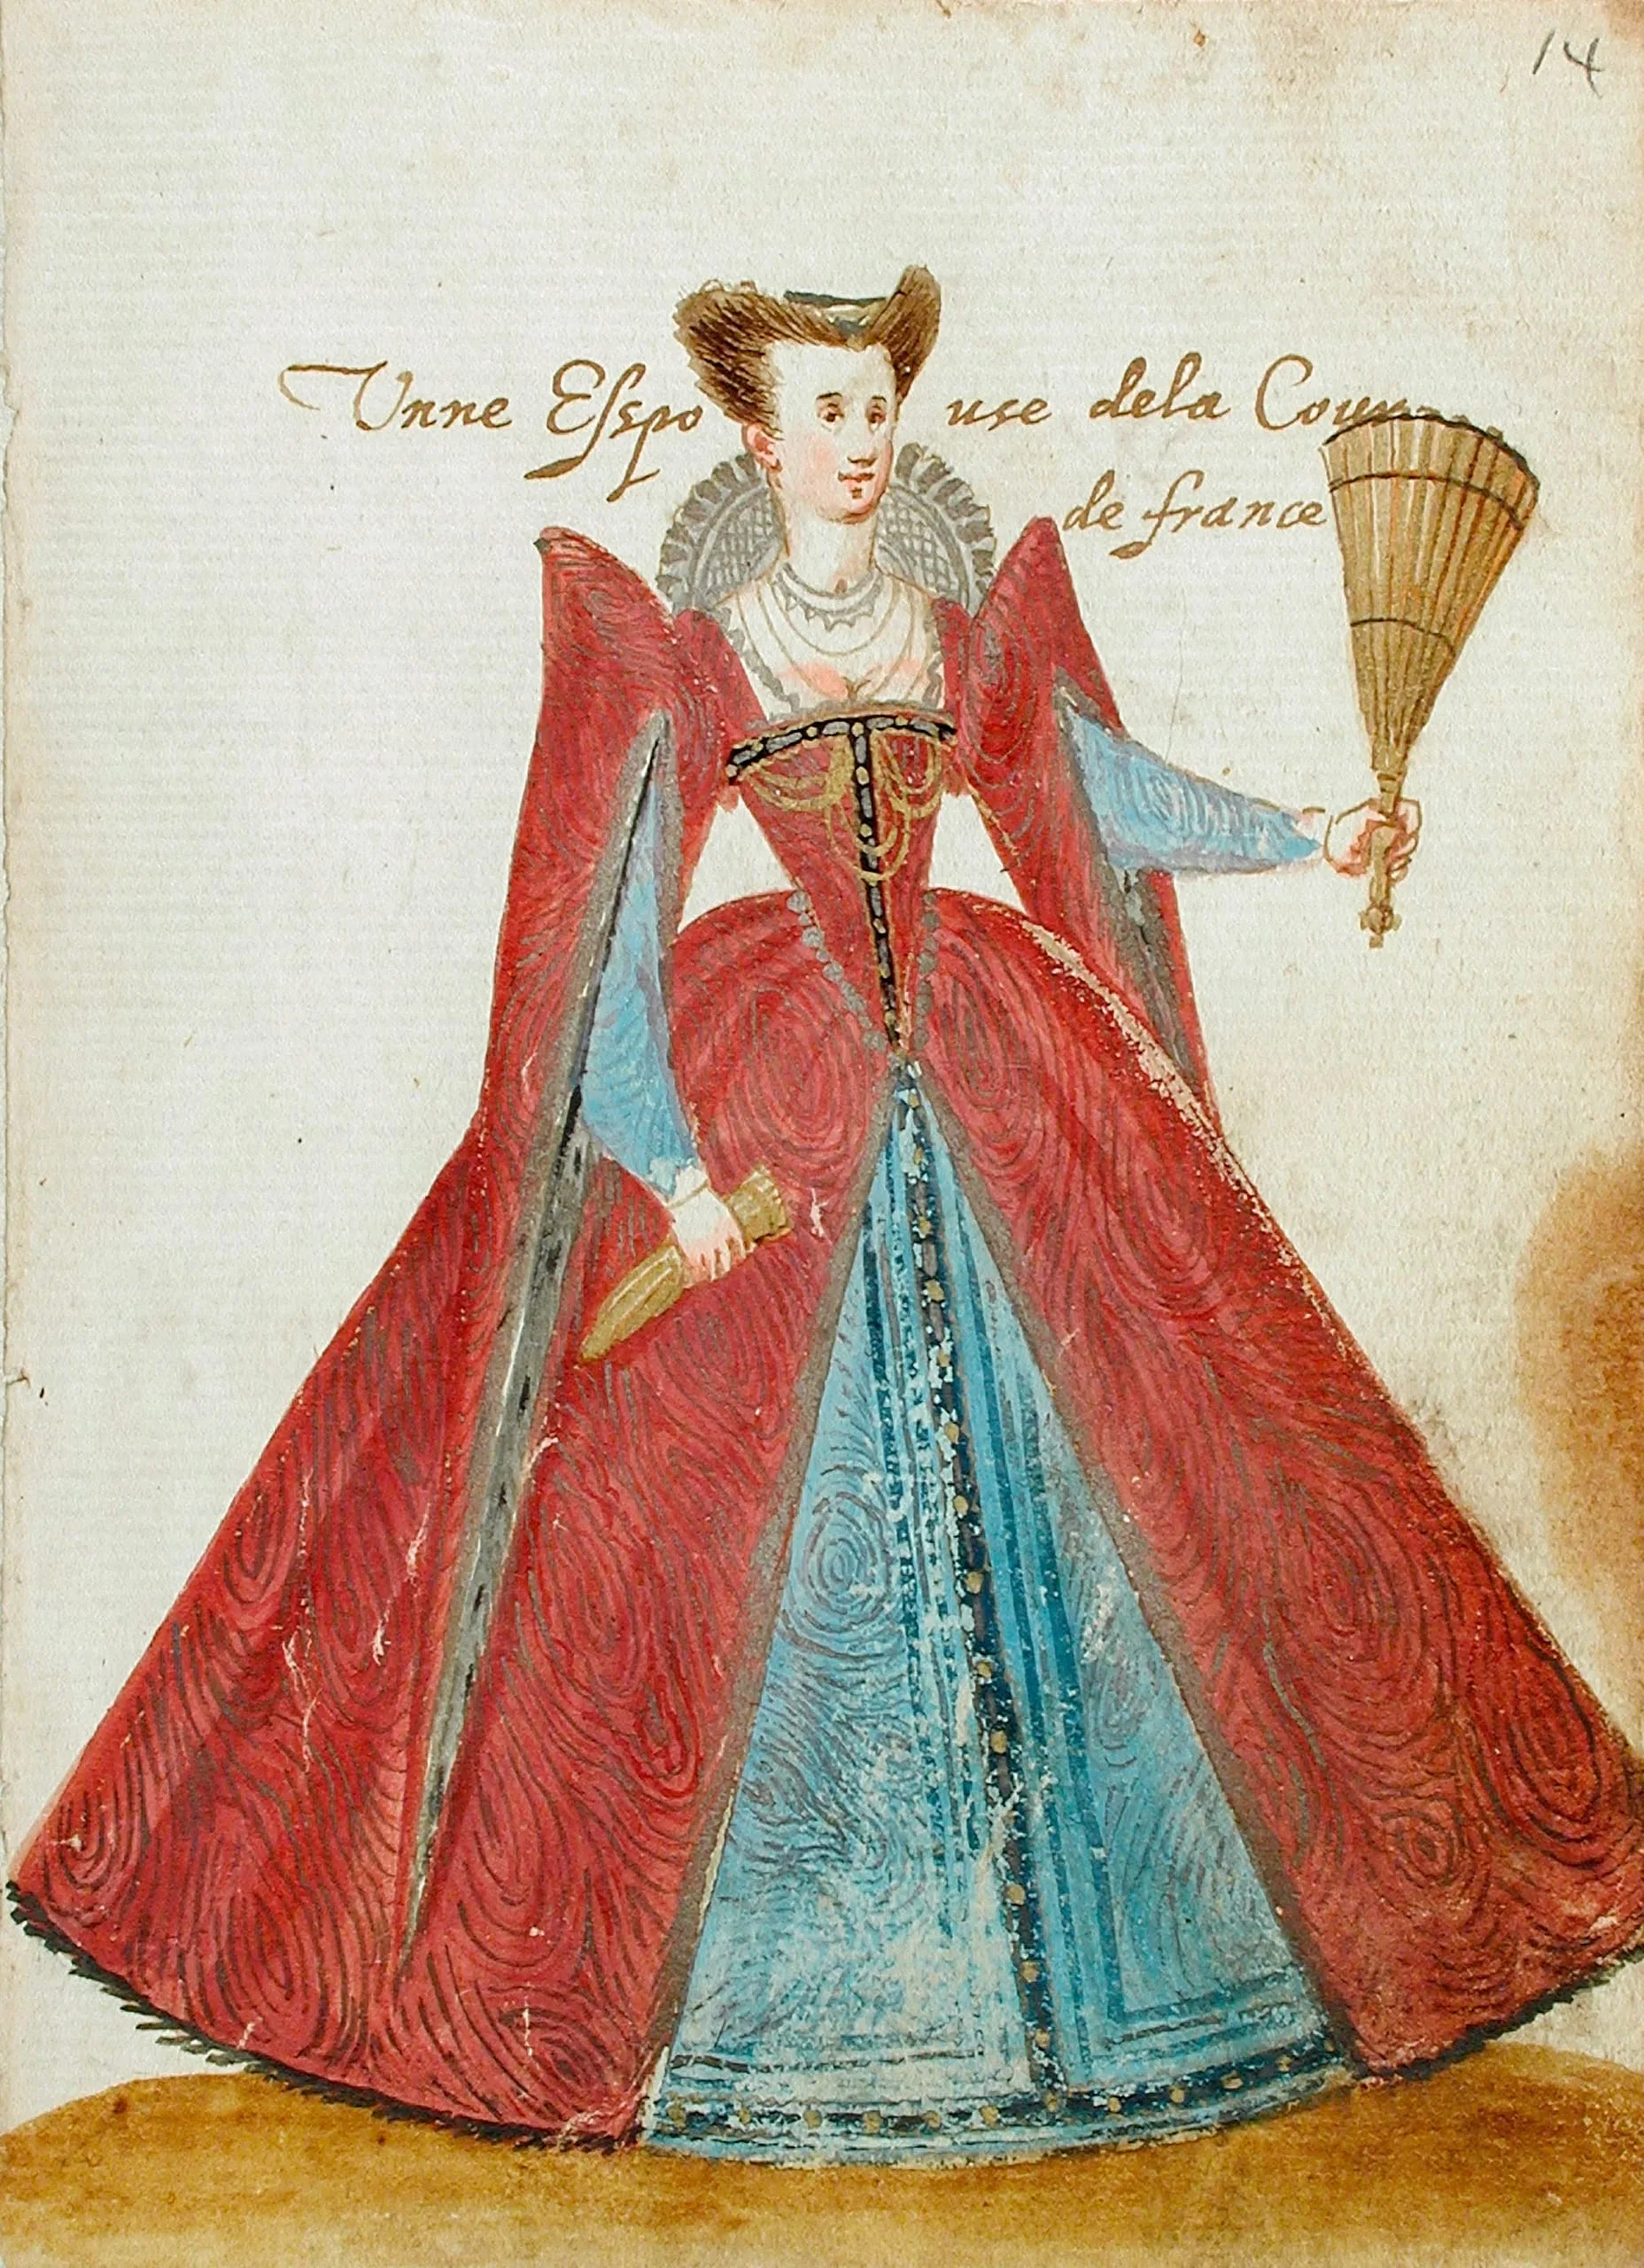 14
Vnne Eſspouse dela Cour
de france